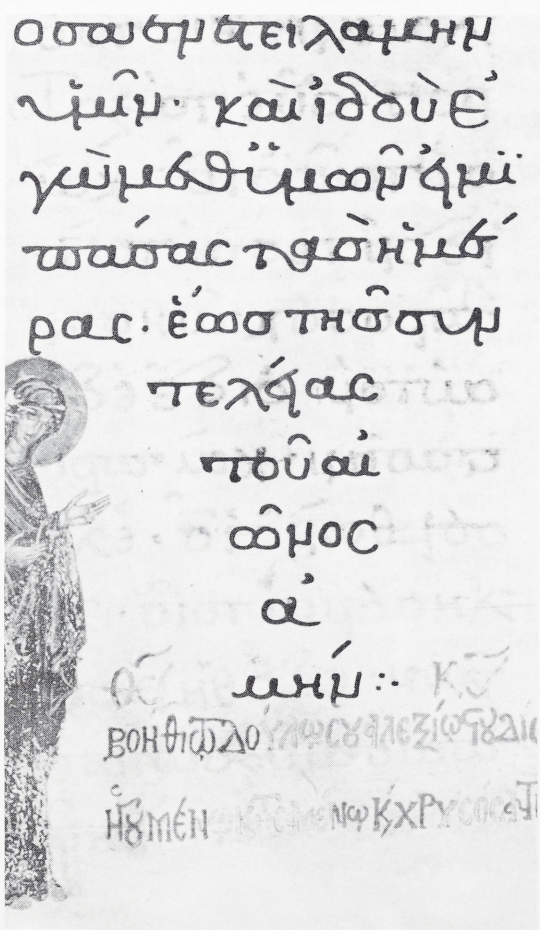 ὅσα ἐνετειλάμην
ὑμῖν· καὶ ἰδοὺ ἐ
γὼ μεθ ὑμῶν εἰμϊ
πάσας τὰς ἡμέ
ρας· ἕως τῆς συν
τελείας
τοῦ αἰ
ῶνος
ἀ
μήν:·
βοηθι τῶ δούλω σου ἀλεξίω
ἡγουμέν